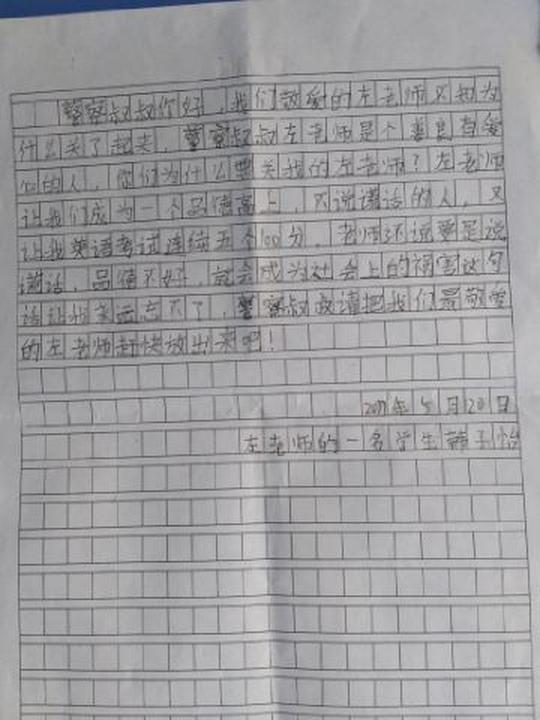 警察叔叔你好，我们敬爱的左老师又被为
什么关了起来，警察叔叔左老师是个善良有爱
心的人，你们为什么要关我的左老师？左老师
让我们成为一个品德高上，不说谎话的人，又
让我英语考试连续五个100分，老师还说要是说
谎话，品德不好，就会成为社会上的祸害这句
话让我永远忘不了，警察叔叔请把我们最敬爱
的左老师赶快放出来吧！
年5月20日
左老师的一名学生韩子怡